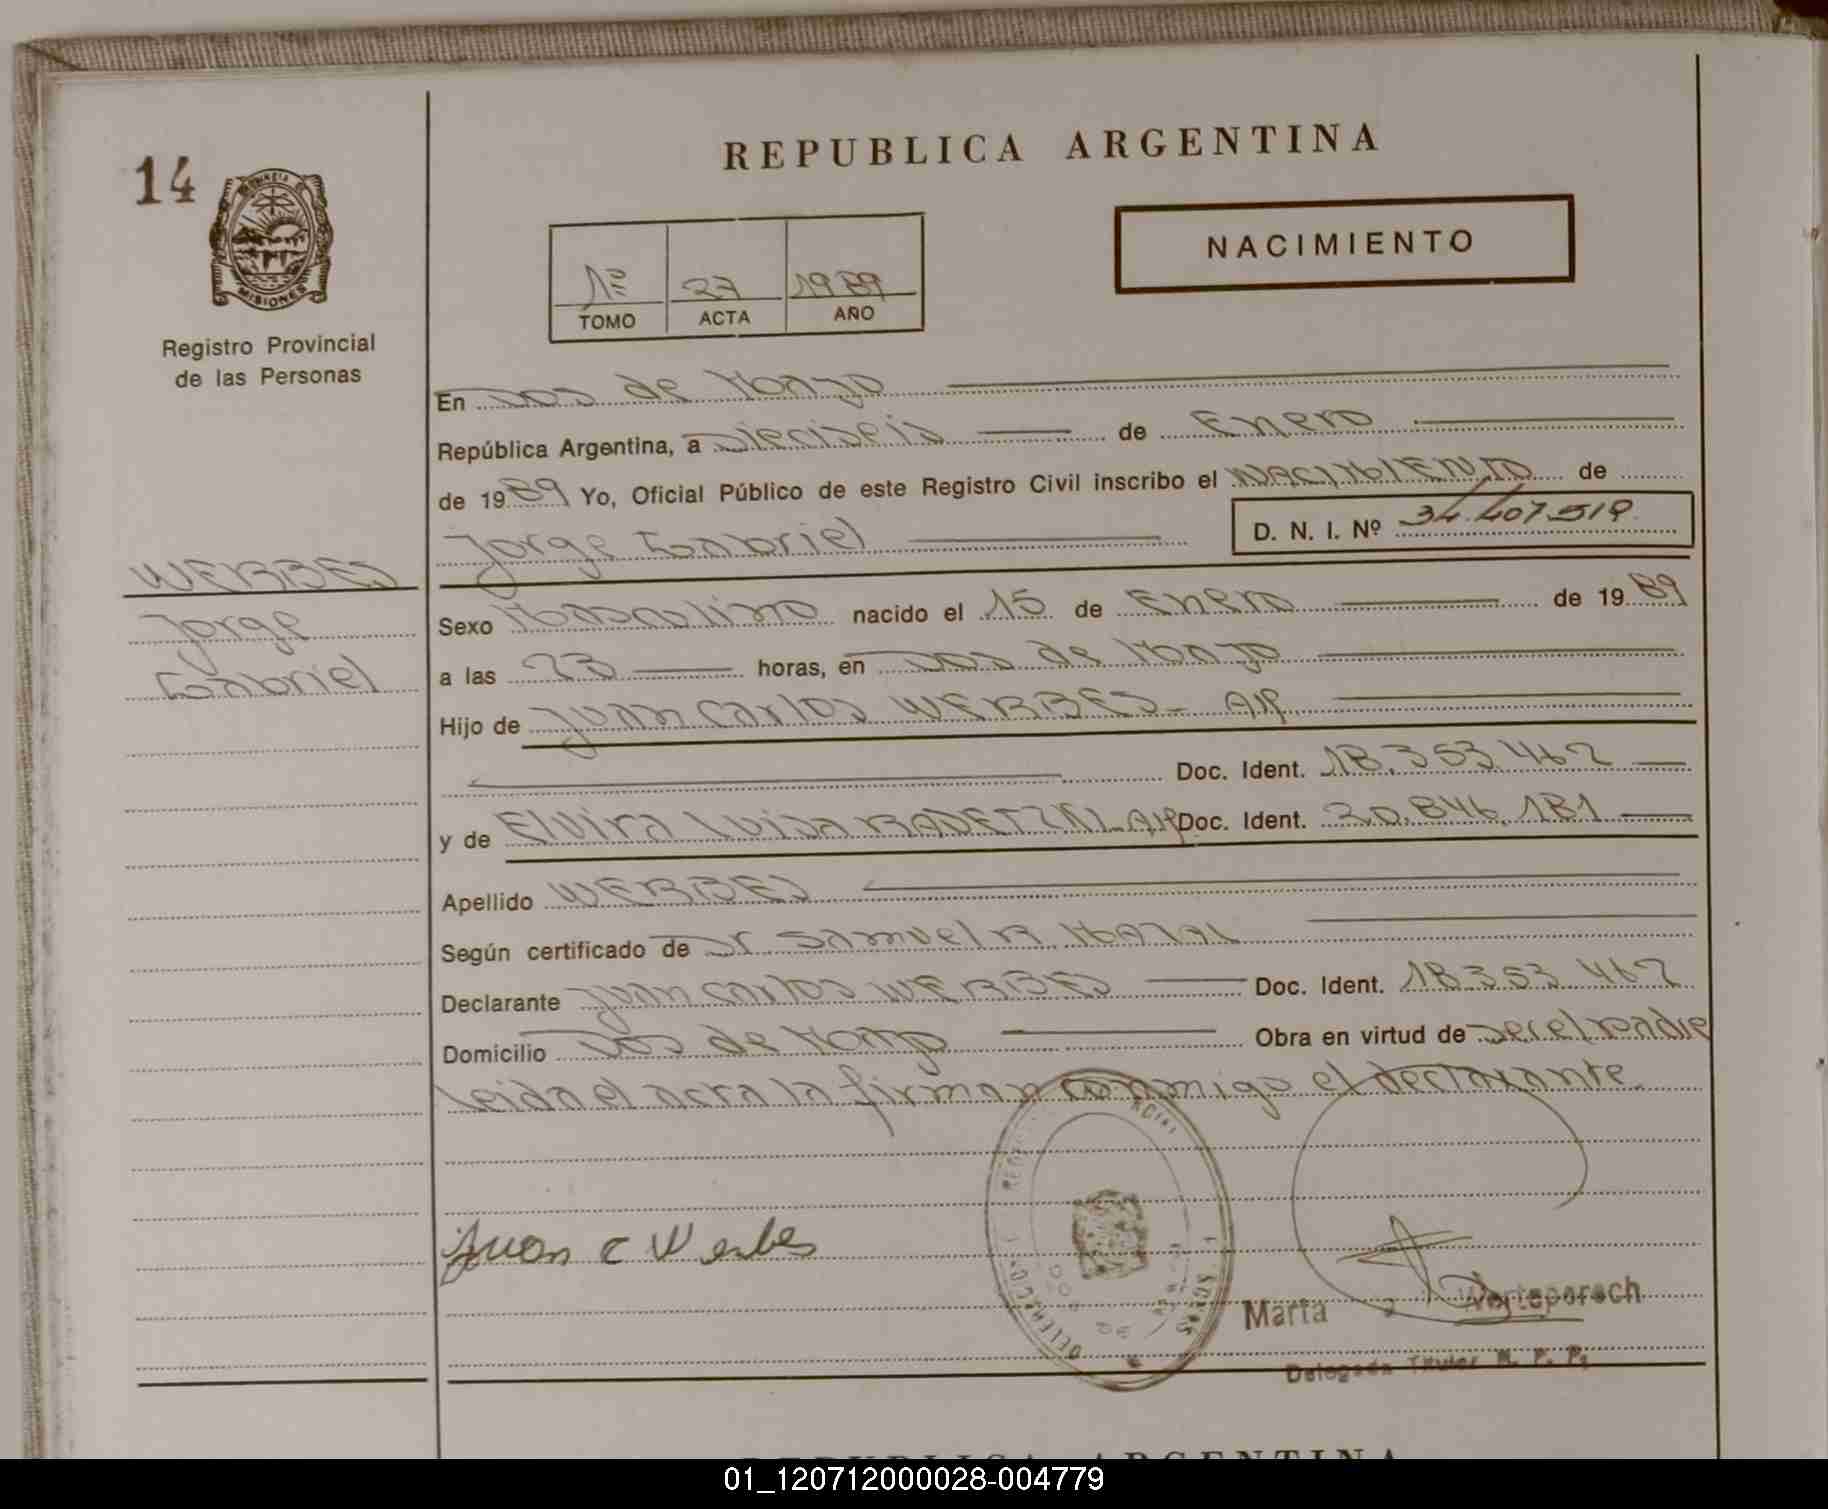 REPUBLICA ARGENTINA
14
NACIMIENTO
1º 27 1989
TOMO ACTA AÑO
MISIONES
Registro Provincial
de las Personas
En Dos de Mayo
República Argentina, a Dieciseis de Enero
de 1989 Yo, Oficial Público de este Registro Civil inscribo el NACIMIENTO de
Jorge Gabriel D. N. I. Nº 34.407.519
WERBES
Jorge
Gabriel
Sexo Masculino nacido el 15 de Enero de 1989
a las 23 horas, en Dos de Mayo
Hijo de Juan Carlos WERBES - AR
Doc. Ident. 18.353.462
y de Elvira Luisa Doc. Ident. 20.846.181
Apellido WERBES
Según certificado de Dr Samuel
Declarante Juan Carlos WERBES Doc. Ident. 18.353.462
Domicilio Dos de Mayo Obra en virtud de ser el padre
leida el acta la firman conmigo el declarante
Juan C Werbes
DOS DE
Marta
Delegada Titular R. P. P.
REPUBLICA ARGENTINA
01_120712000028-004779